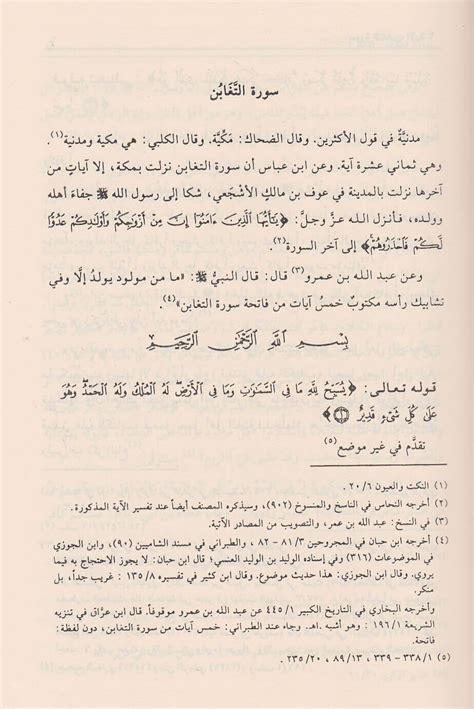 سورة التَّغَابُن
مدنيَّةٌ في قول الأكثرين. وقال الضحاك: مَكيَّة. وقال الكلبي: هي مكية ومدنية(١).
وهي ثماني عشرة آية. وعن ابن عباس أن سورة التغابن نزلت بمكة، إلا آياتٍ من
آخرها نزلت بالمدينة في عوف بن مالك الأشْجَعي، شكا إلى رسول الله ﷺ جفاءَ أهله
وولده، فأنزل الله عزَّ وجلَّ: ﴿يَٰٓأَيُّهَا ٱلَّذِينَ ءَامَنُوٓا۟ إِنَّ مِنْ أَزْوَٰجِكُمْ وَأَوْلَٰدِكُمْ عَدُوًّا
لَّكُمْ فَٱحْذَرُوهُمْ﴾ إلى آخر السورة(٢).
وعن عبد الله بن عمرو(٣) قال: قال النبيُّ ﷺ: «ما من مولود يولدُ إلَّا وفي
تشابيك رأسه مكتوبٌ خمسُ آيات من فاتحة سورة التغابن»(٤).
بِسْمِ ٱللَّهِ ٱلرَّحْمَٰنِ ٱلرَّحِيمِ
قوله تعالى: ﴿يُسَبِّحُ لِلَّهِ مَا فِى ٱلسَّمَٰوَٰتِ وَمَا فِى ٱلْأَرْضِ لَهُ ٱلْمُلْكُ وَلَهُ ٱلْحَمْدُ وَهُوَ
عَلَىٰ كُلِّ شَىْءٍ قَدِيرٌ ۝١﴾
تقدَّم في غير موضع(٥)
(١) النكت والعيون ٢٠/٦.
(٢) أخرجه النحاس في الناسخ والمنسوخ (٩٠٢)، وسيذكره المصنف أيضاً عند تفسير الآية المذكورة.
(٣) في النسخ: عبد الله بن عمر، والتصويب من المصادر الآتية.
(٤) أخرجه ابن حبان في المجروحين ٨١/٣ - ٨٢، والطبراني في مسند الشاميين (٩٠)، وابن الجوزي
في الموضوعات (٣١٦) وفي إسناده الوليد بن الوليد العنسي؛ قال ابن حبان: لا يجوز الاحتجاج به فيما
يروي. وقال ابن الجوزي: هذا حديث موضوع. وقال ابن كثير في تفسيره ١٣٥/٨ : غريب جداً، بل
منكر.
وأخرجه البخاري في التاريخ الكبير ٤٤٥/١ عن عبد الله بن عمرو موقوفاً. قال ابن عرَّاق في تنزيه
الشريعة ١٩٦/١: وهو أشبه .اهـ. وجاء عند الطبراني: خمس آيات من سورة التغابن، دون لفظة:
فاتحة.
(٥) ٣٣٨/١ - ٣٣٩ ، ٨٩/١٣ ، ٢٣٥/٢٠ .